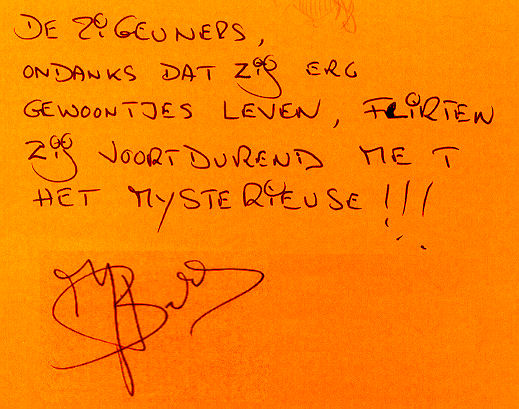 DE ZIGEUNERS,
ONDANKS DAT ZIJ ERG
GEWOONTJES LEVEN, FLIRTEN
ZIJ VOORTDUREND MET
HET MYSTERIEUSE !!!